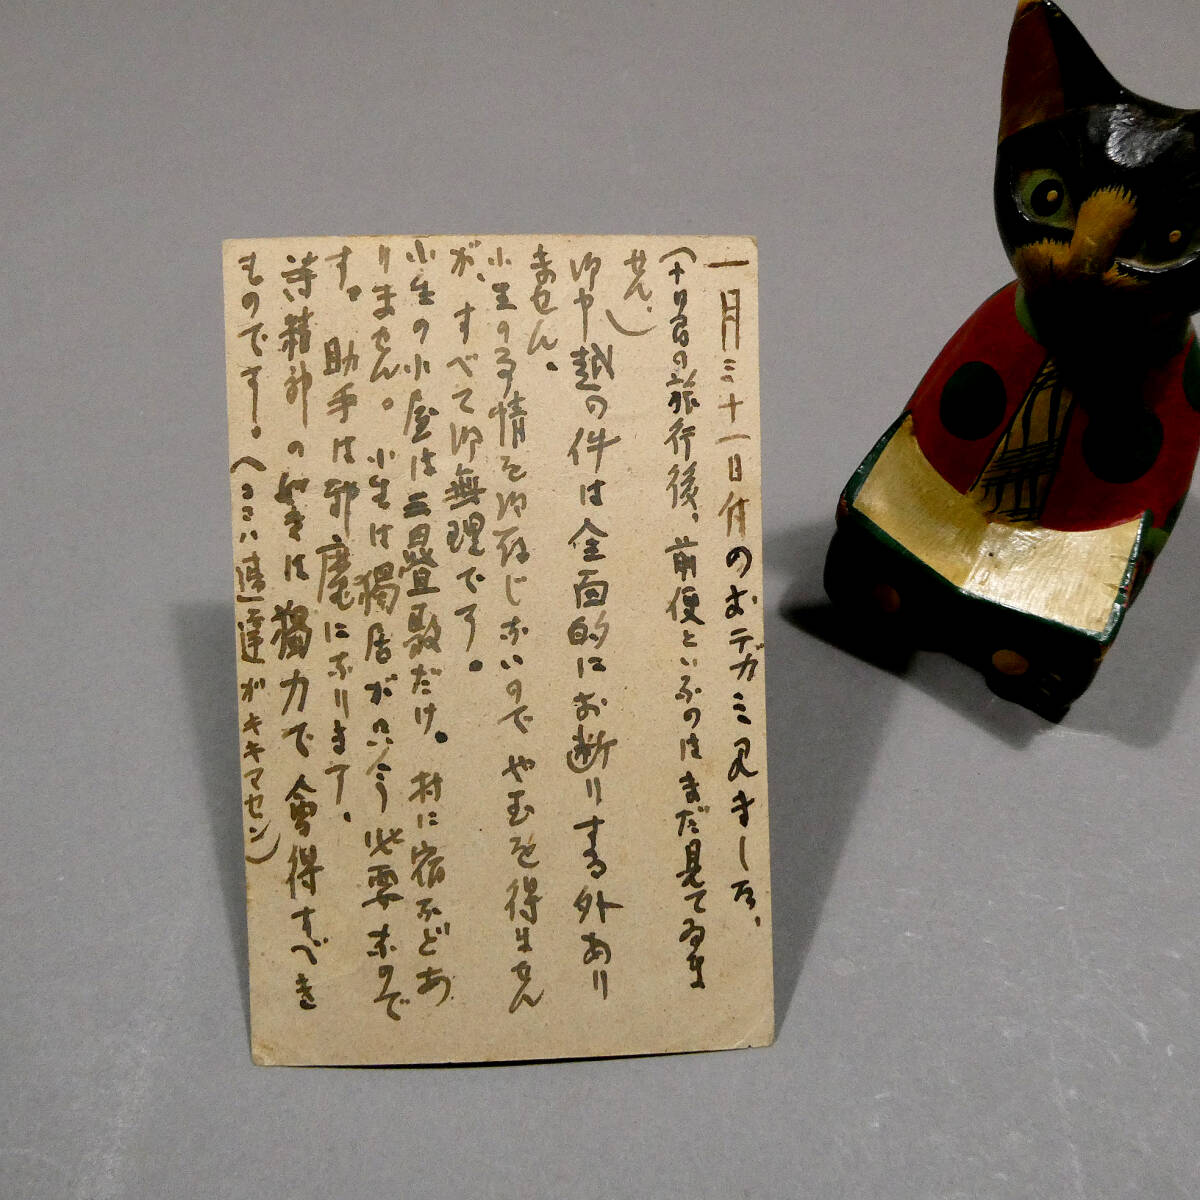 一月三十一日付のおテガミ見ました、
(十日間の旅行後、前便といふのはまだ見てゐま
せん、)
御申越の件は全面的にお断りする外あり
ません。
小生の事情を御存じないのでやむを得ません
が、すべて御無理です。
小生の小屋は三畳敷だけ。村に宿などあ
りません。小生は獨居が只今必要なので
す。助手は邪魔になります、
詩精神の如きは獨力で會得すべき
ものです。(ココハ速達ガキキマセン)